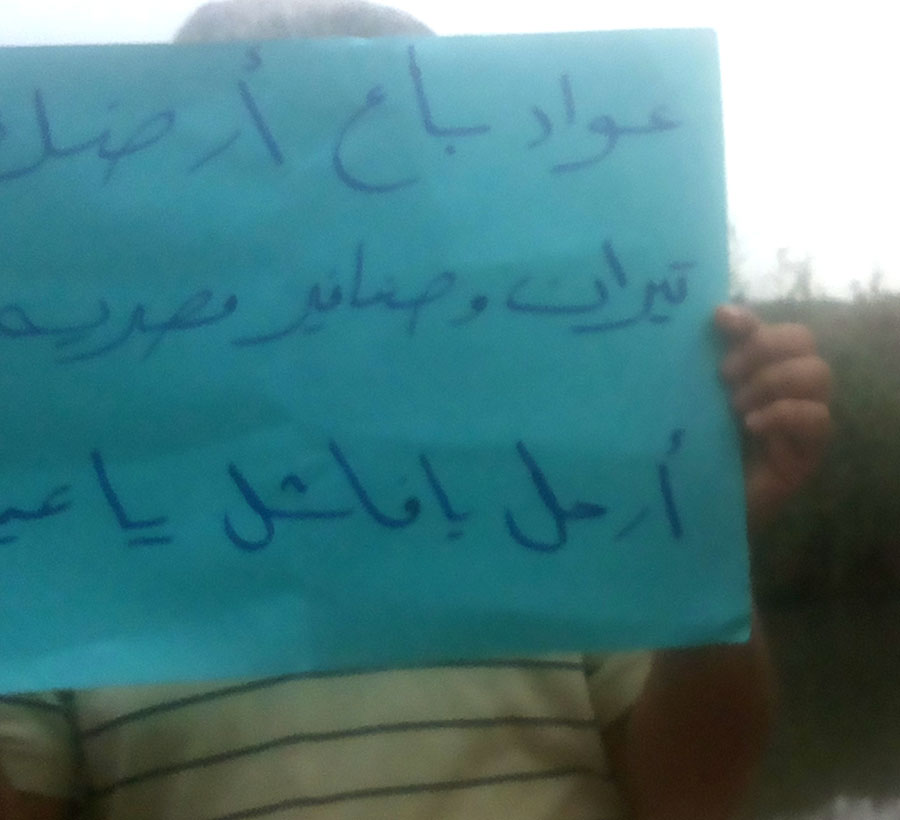 عواد باع أرضك
تيران وصنافير مصريه
أرحل يا فاشل يا